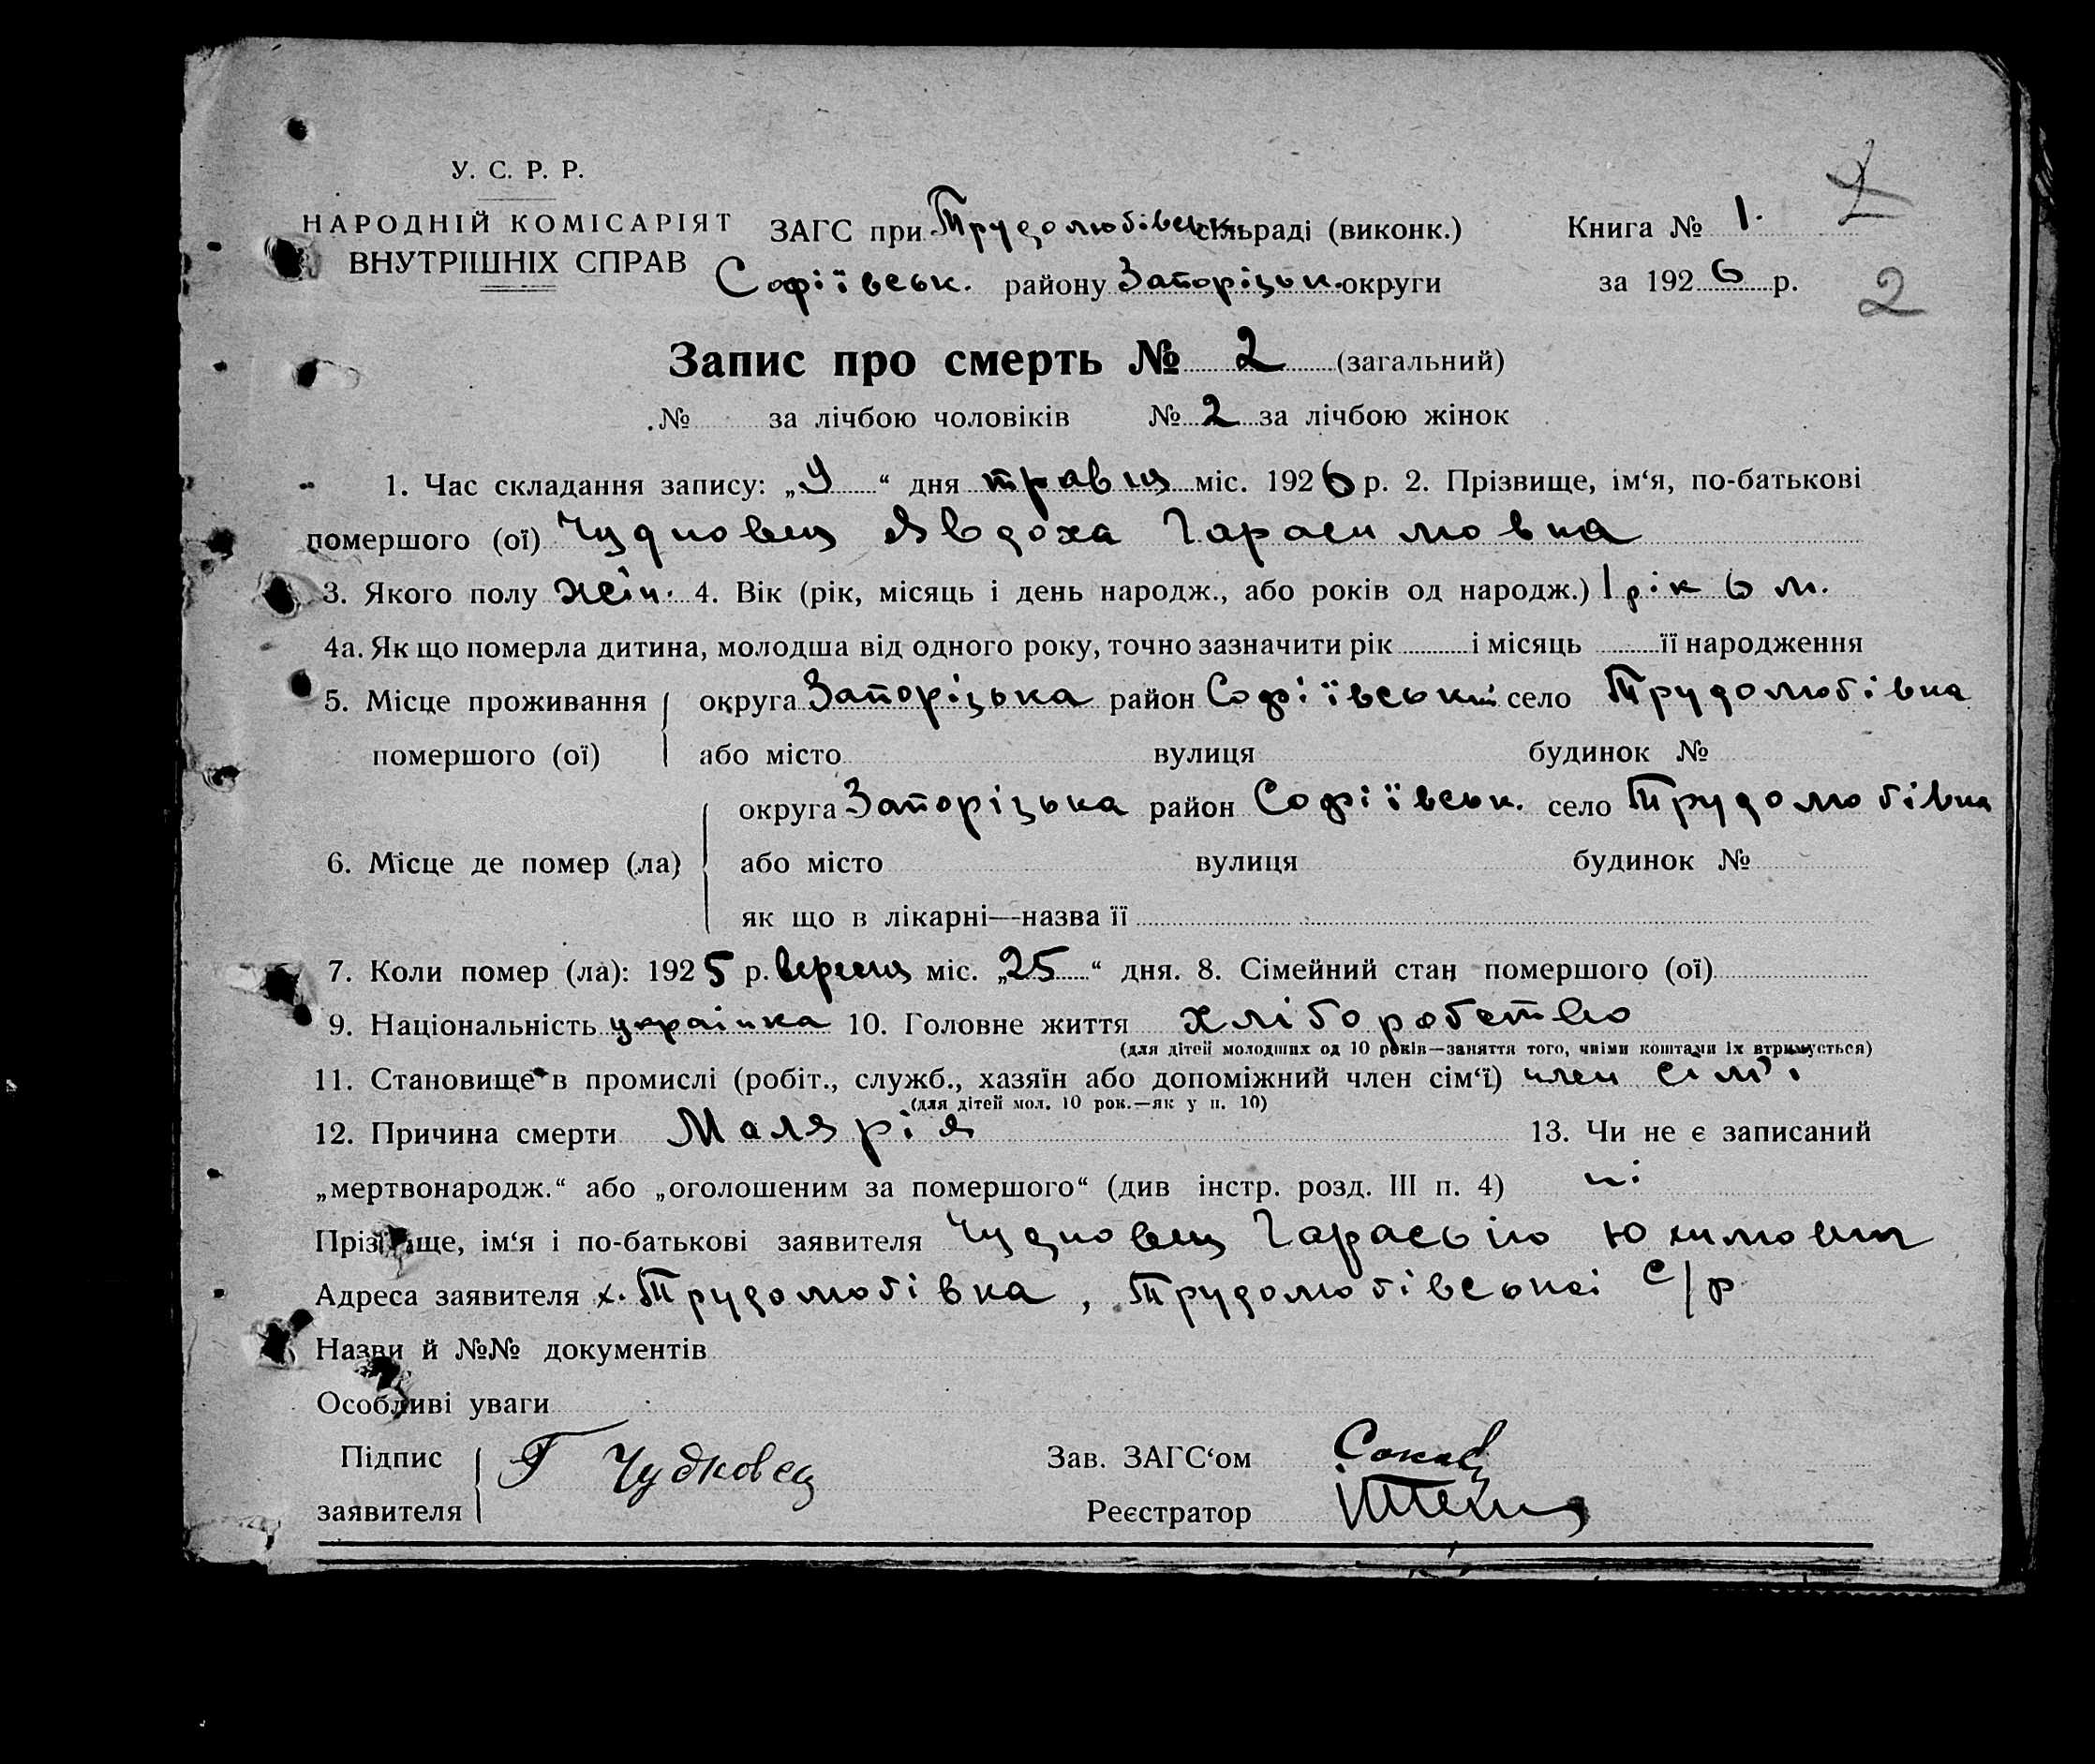 У. С. Р. Р.
НАРОДНІЙ КОМІСАРІЯТ
ВНУТРІШНІХ СПРАВ
ЗАГС при Трудолюбівськ сільраді (виконк.)
Софіївськ. району Запорізьк. округи
Книга № 1.
за 1926 р.
2
2
Запис про смерть № 2 (загальний)
№ за лічбою чоловіків № 2 за лічбою жінок
1. Час складання запису: „ “ дня травця міс. 1926 р. 2. Прізвище, ім‘я, по-батькові
помершого (ої) Чудновец Явдоха Гарасимовна
3. Якого полу жін. 4. Вік (рік, місяць і день народж., або років од народж.) 1 рік 6 м.
4а. Як що померла дитина, молодша від одного року, точно зазначити рік і місяць її народження
5. Місце проживання помершого (ої) округа Запорізька район Софіївський село Трудолюбівка
або місто вулиця будинок №
6. Місце де помер (ла) округа Запорізька район Софіївськ. село Трудолюбівка
або місто вулиця будинок №
як що в лікарні—назва її
7. Коли помер (ла): 1925 р. вересця міс. „25“ дня. 8. Сімейний стан помершого (ої)
9. Національність украінка 10. Головне життя хліборобство
(для дітей молодших од 10 років—заняття того, чиїми коштами їх втримується)
11. Становище в промислі (робіт., служб., хазяїн або допоміжний член сім‘ї) член сім'ї
(для дітей мол. 10 рок.—як у п. 10)
12. Причина смерти Малярія 13. Чи не є записаний
„мертвонародж.“ або „оголошеним за помершого“ (див інстр. розд. III п. 4) ні
Прізвище, ім‘я і по-батькові заявителя Чудновец Гарасько Юхимович
Адреса заявителя х. Трудолюбівка, Трудолюбівськоі с/р
Назви й №№ документів
Особливі уваги
Підпис заявителя Г Чудновец
Зав. ЗАГС‘ом
Реєстратор